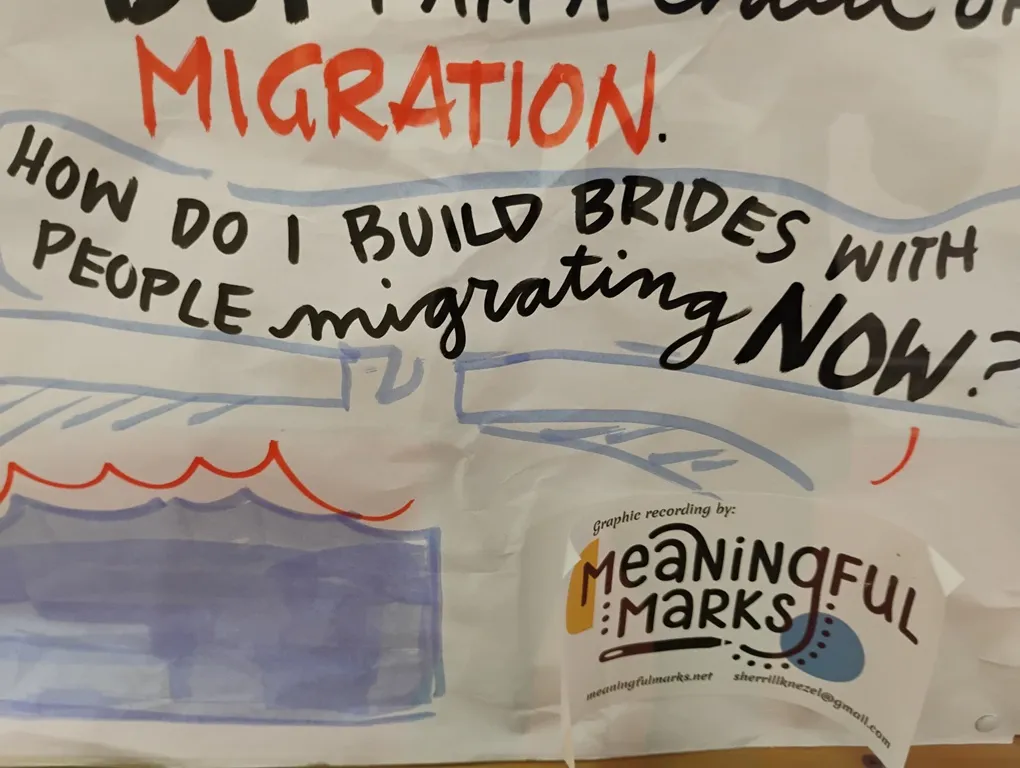 BUT I AM A child OF
MIGRATION.
HOW DO I BUILD BRIDES WITH
PEOPLE migrating NOW?
Graphic recording by:
MeaNiNgFUL
MaRKS
meaningfulmarks.net sherrillknezel@gmail.com